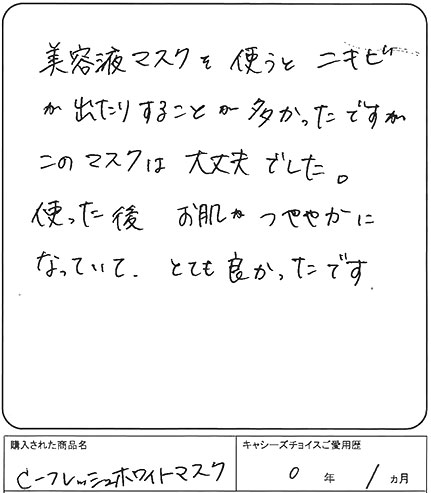 美容液マスクを 使うと ニキビ
が 出たりすることが 多かったですが
このマスクは 大丈夫でした。
使った後 お肌が つややかに
なっていて. とても良かったです.
購入された商品名
C-フレッシュホワイトマスク
キャシーズチョイスご愛用歴
0 年 1 ヵ月